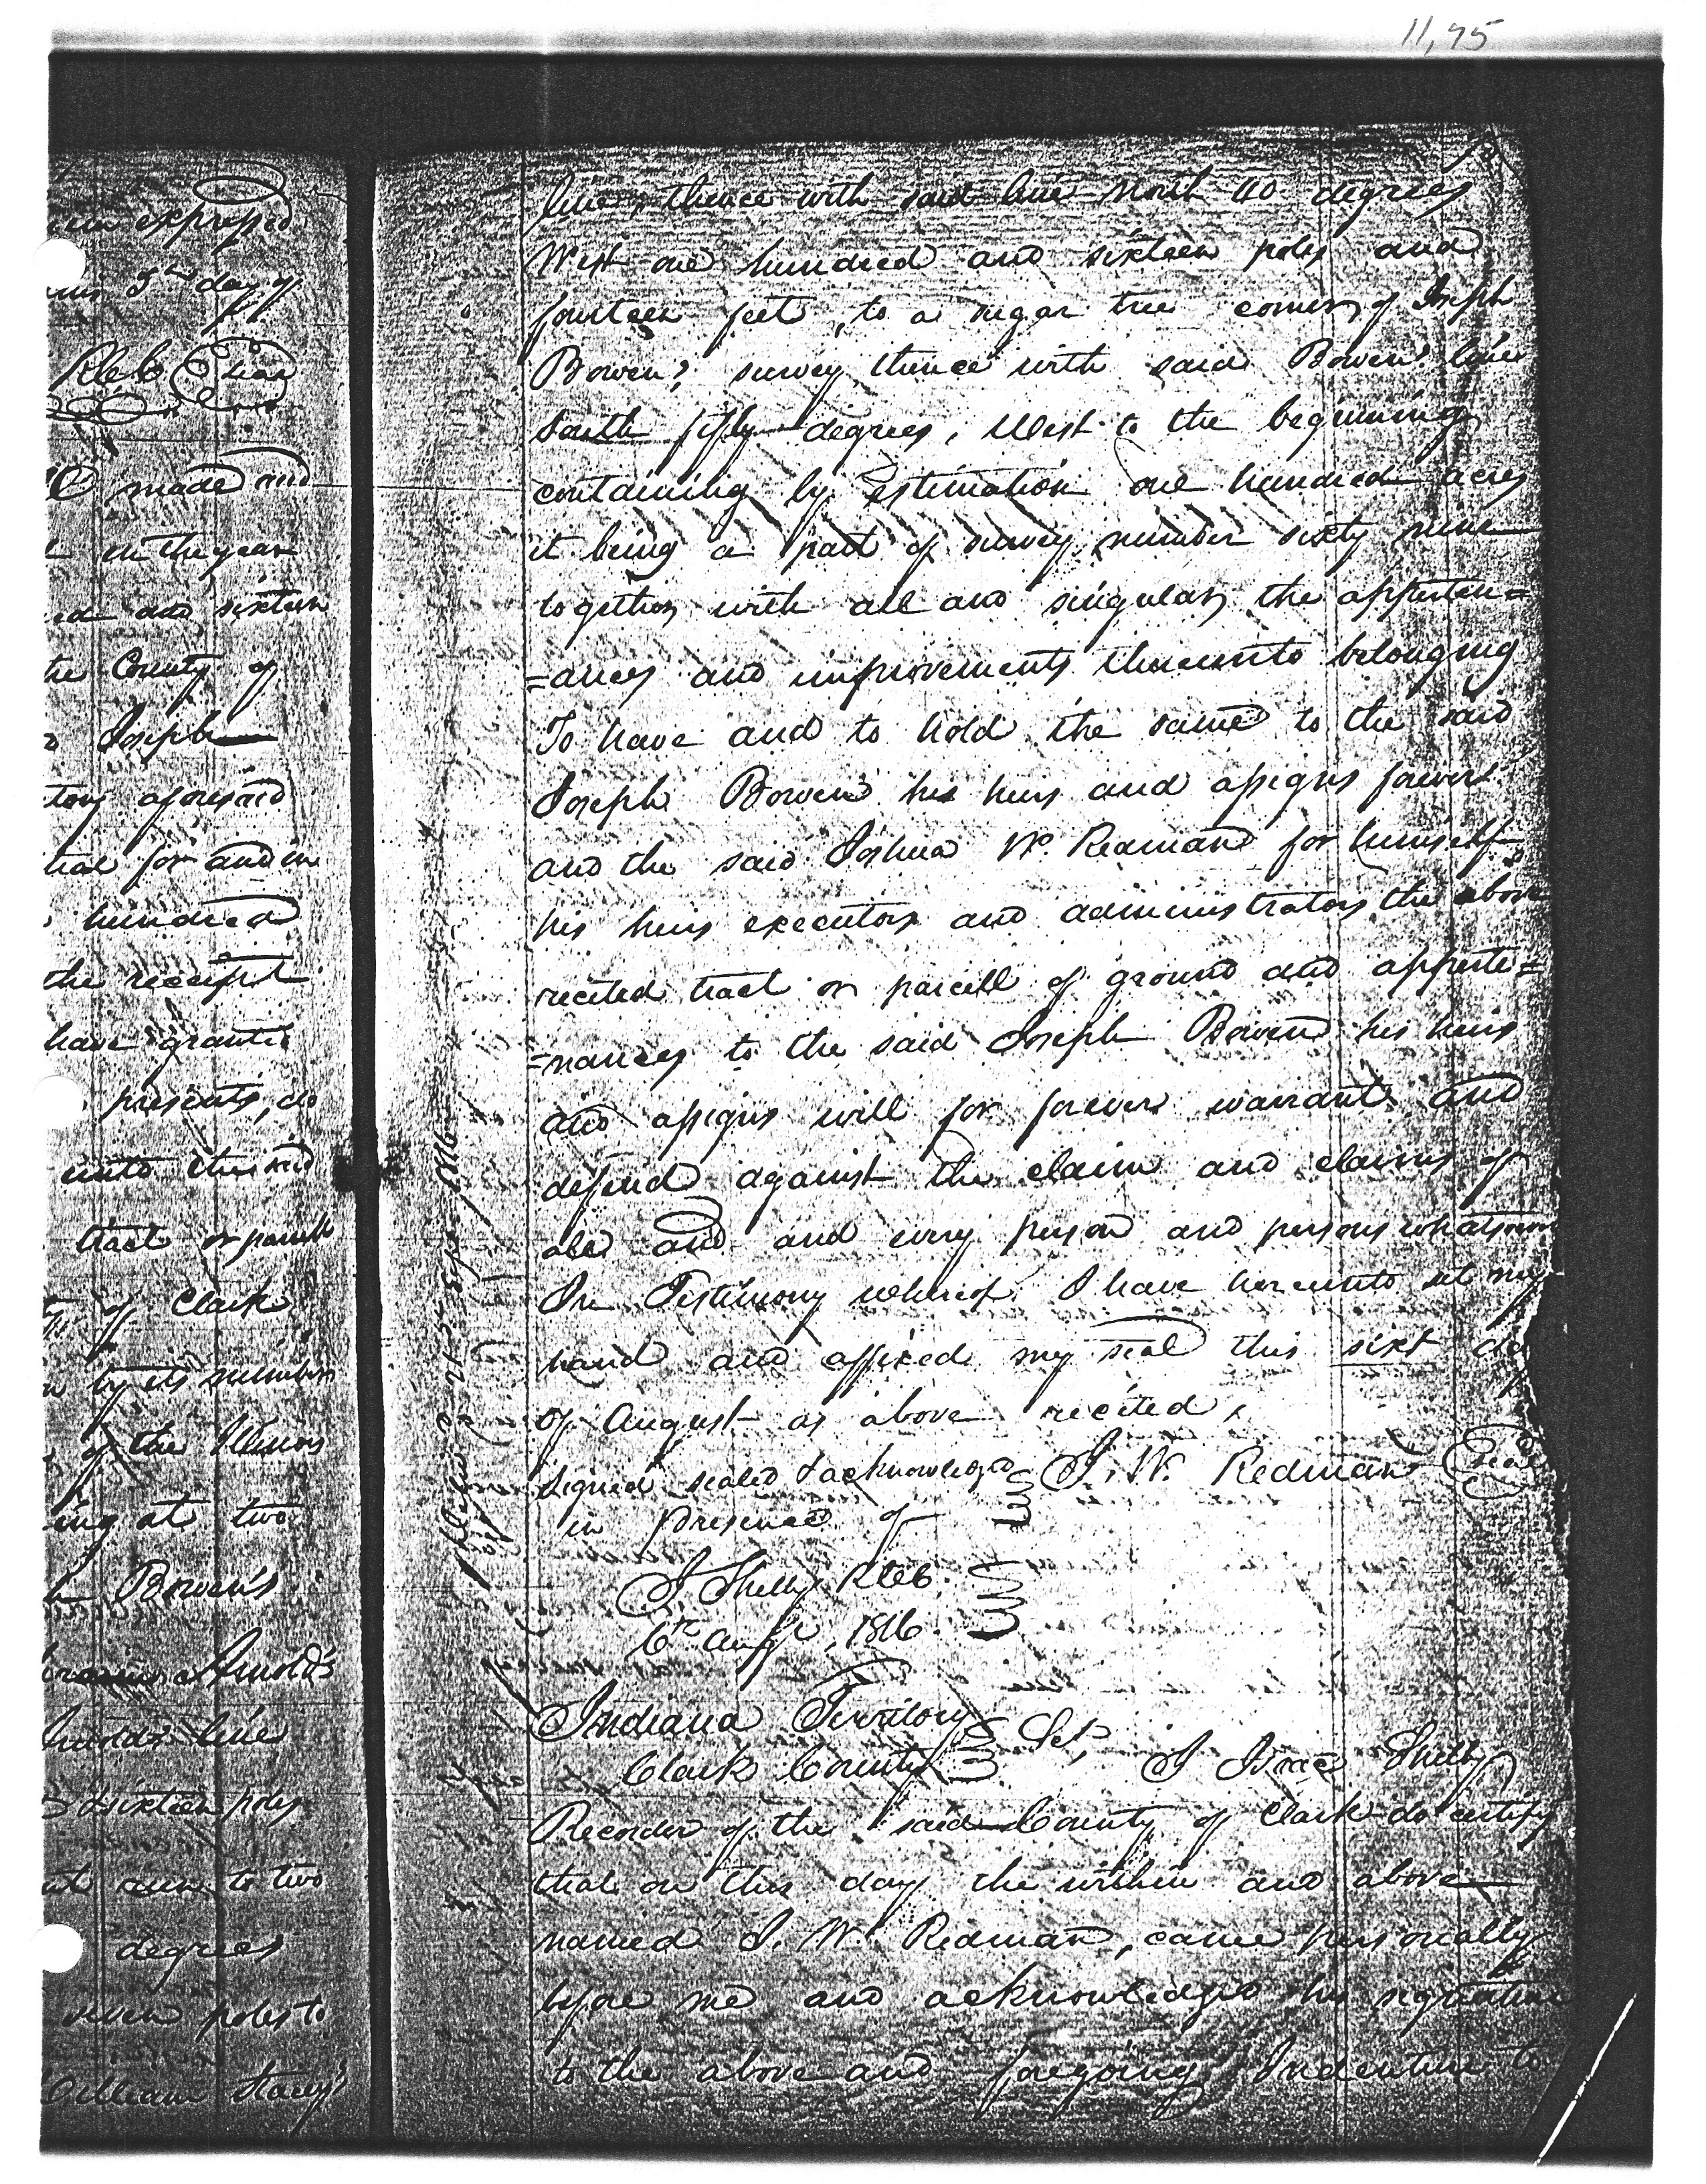 11,75
expressed
5th day of
RCCC Seal
made and
in the year
and sixteen
the County of
Joseph
aforesaid
for and in
hundred
the receipt
have granted
presents, do
unto the said
tract or parcell
of Clark
by its number
of the Illinois
at two
Bowen's
Arnold's
line
& sixteen poles
to two
degrees
seven poles to
William Stacey's
line, thence with said line North 40 degrees
West one hundred and sixteen poles and
fourteen feet, to a sugar tree corner of Joseph
Bowen's survey thence with said Bowen's line
South fifty degrees, West to the beginning
containing by estimation one hundred acres
it being a part of survey number sixty nine
together with all and singular the apperten=
=ances and improvements thereunto belonging
To have and to hold the same to the said
Joseph Bowen his heirs and assigns forever
and the said Joshua W. Redman for himself
his heirs executors and administrators the above
recited tract or parcell of ground and apperte=
=nances to the said Joseph Bowen his heirs
and assigns will for forever warrant and
defend against the claim and claims of
all and and every person and persons whatsoever
In Testimony whereof I have hereunto set my
hand and affixed my seal this sixt day
of August as above recited,
signed sealed & acknowledged J. W. Redman Seal
in presence of
I Shelby RCCC
6th Augst, 1816
Indiana Territory
Clark County Sct, I Isaac Shelby
Recorder of the said County of Clark do certify
that on this day the within and above
named J. W. Redman, came personally
before me and acknowledged his signature
to the above and foregoing Indenture to